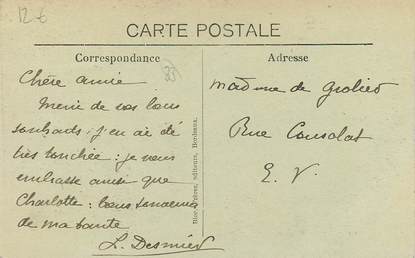 12 €
CARTE POSTALE
Correspondance
Adresse
Chère amie
Merci de vos bons
souhaits : j'en ai été
très touchée : je vous
embrasse ainsi que
Charlotte : bons
de ma tante
L. Desmier
Madame de
Rue Consolat
E. V.
frères, éditeurs, Bordeaux.